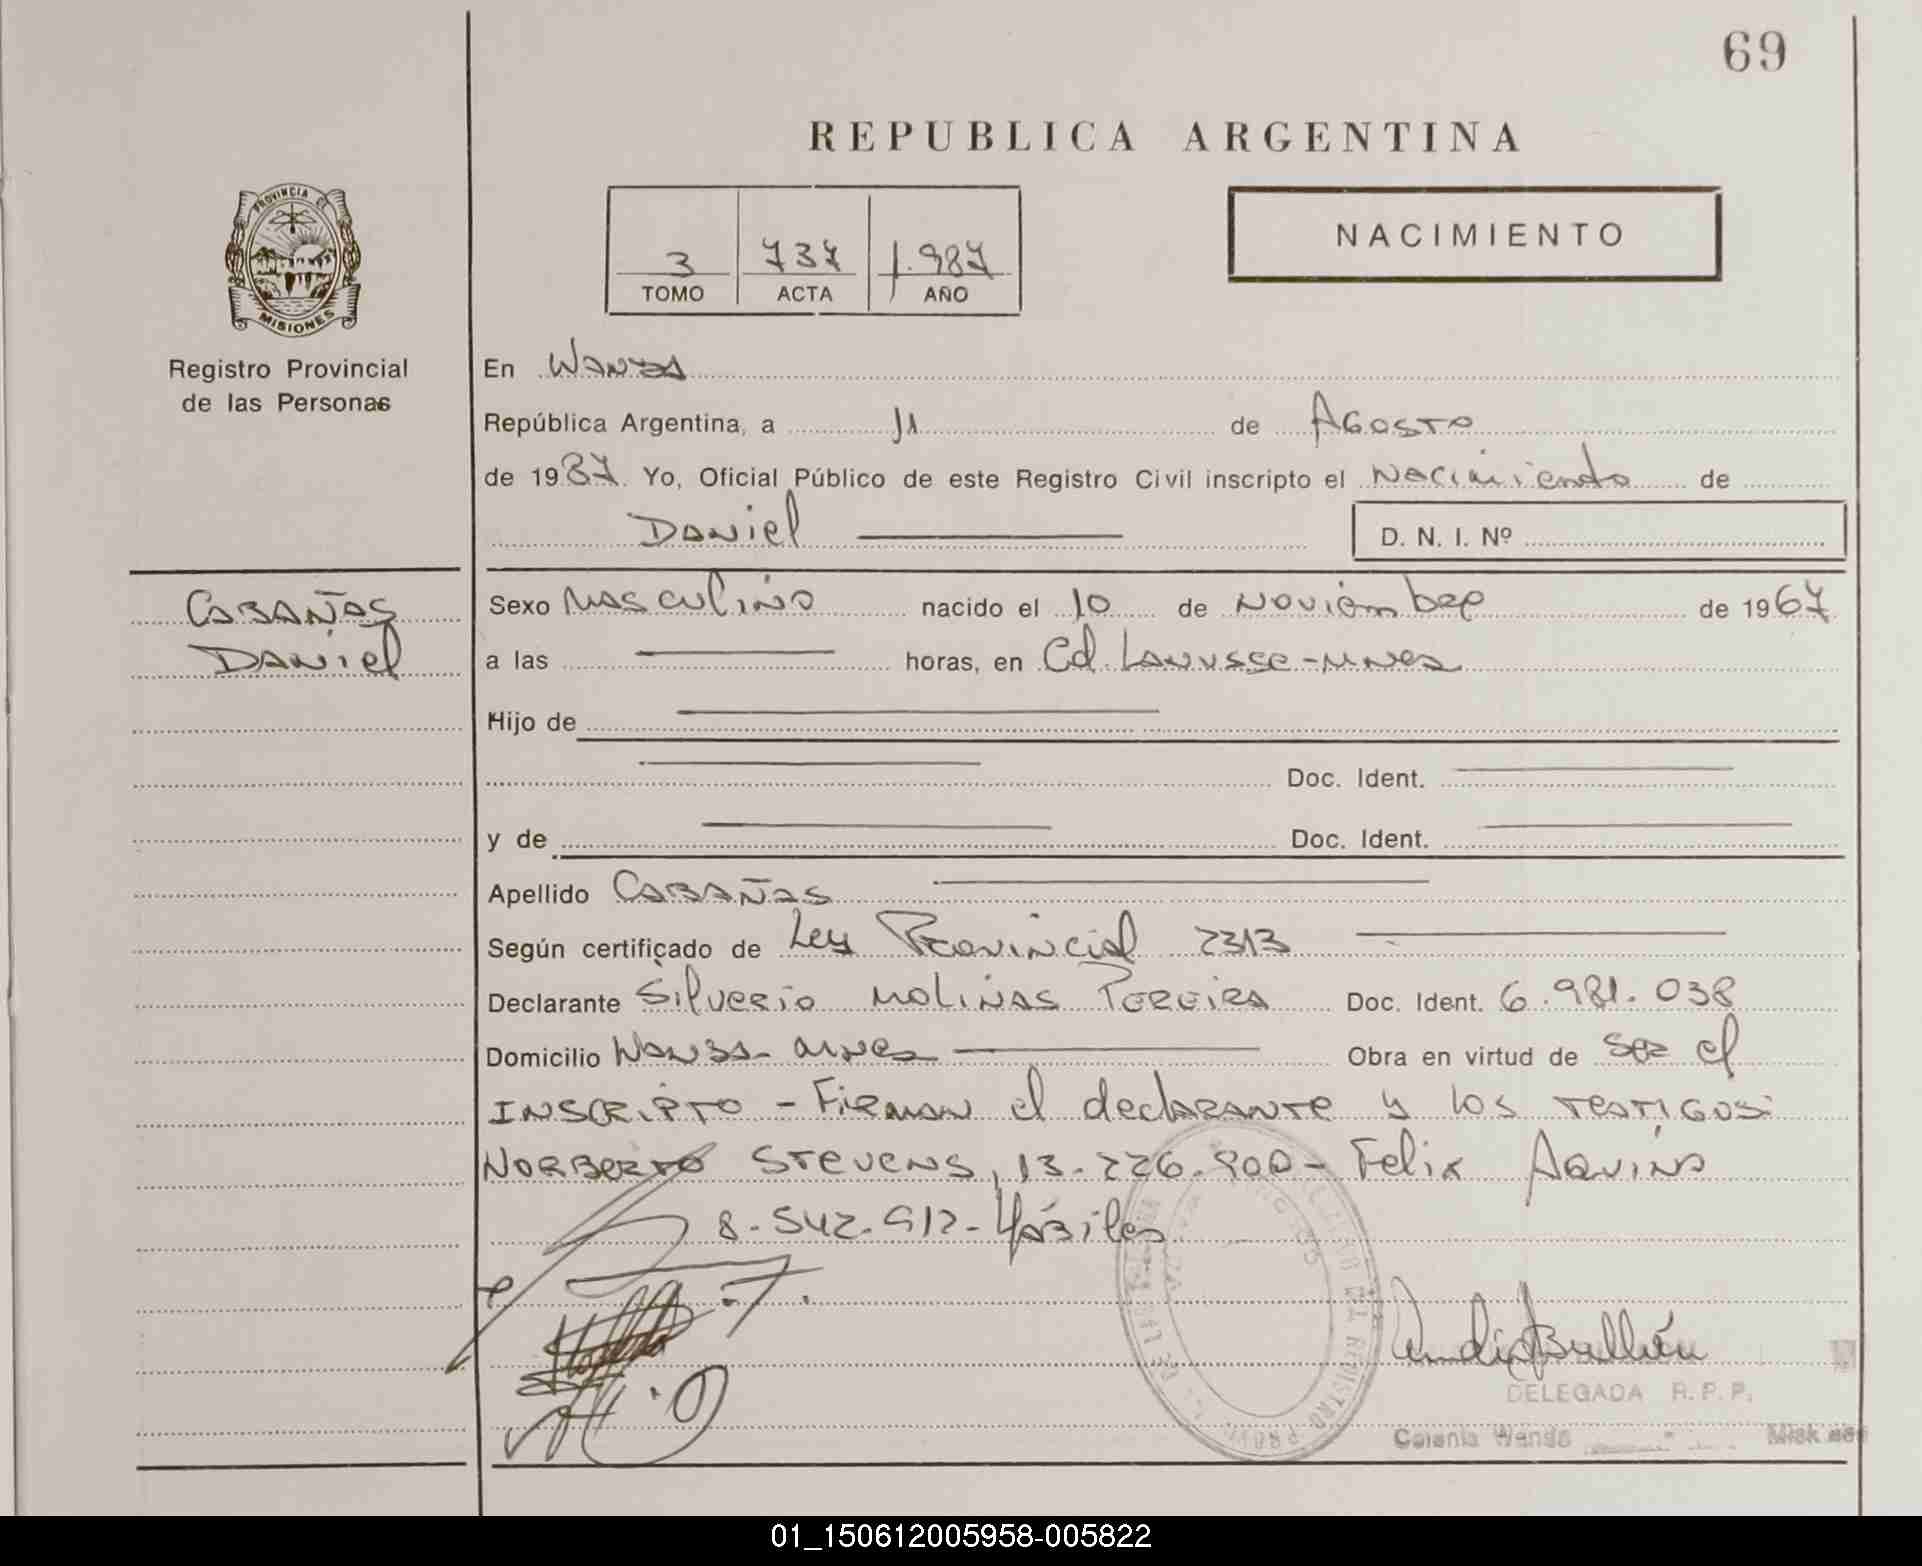 69
REPUBLICA ARGENTINA
PROVINCIA DE
MISIONES
3 737 1.987
TOMO ACTA AÑO
NACIMIENTO
Registro Provincial
de las Personas
En Wanda
República Argentina, a 11 de Agosto
de 1987 Yo, Oficial Público de este Registro Civil inscripto el Nacimiento de
Daniel D. N. I. Nº
Cabañas
Daniel
Sexo Masculino nacido el 10 de Noviembre de 1967
a las horas, en Cd. Lanusse - Mnes
Hijo de
Doc. Ident.
y de Doc. Ident.
Apellido Cabañas
Según certificado de Ley Provincial 2313
Declarante Silverio Molinas Pereira Doc. Ident. 6.981.038
Domicilio Wanda - Mnes Obra en virtud de ser el
inscripto - Firman el declarante y los testigos:
Norberto Stevens, 13.226.900 - Felix Aquino
8.542.912 - Hábiles
DELEGADA R. P. P.
Colonia Wanda Misiones
01_150612005958-005822